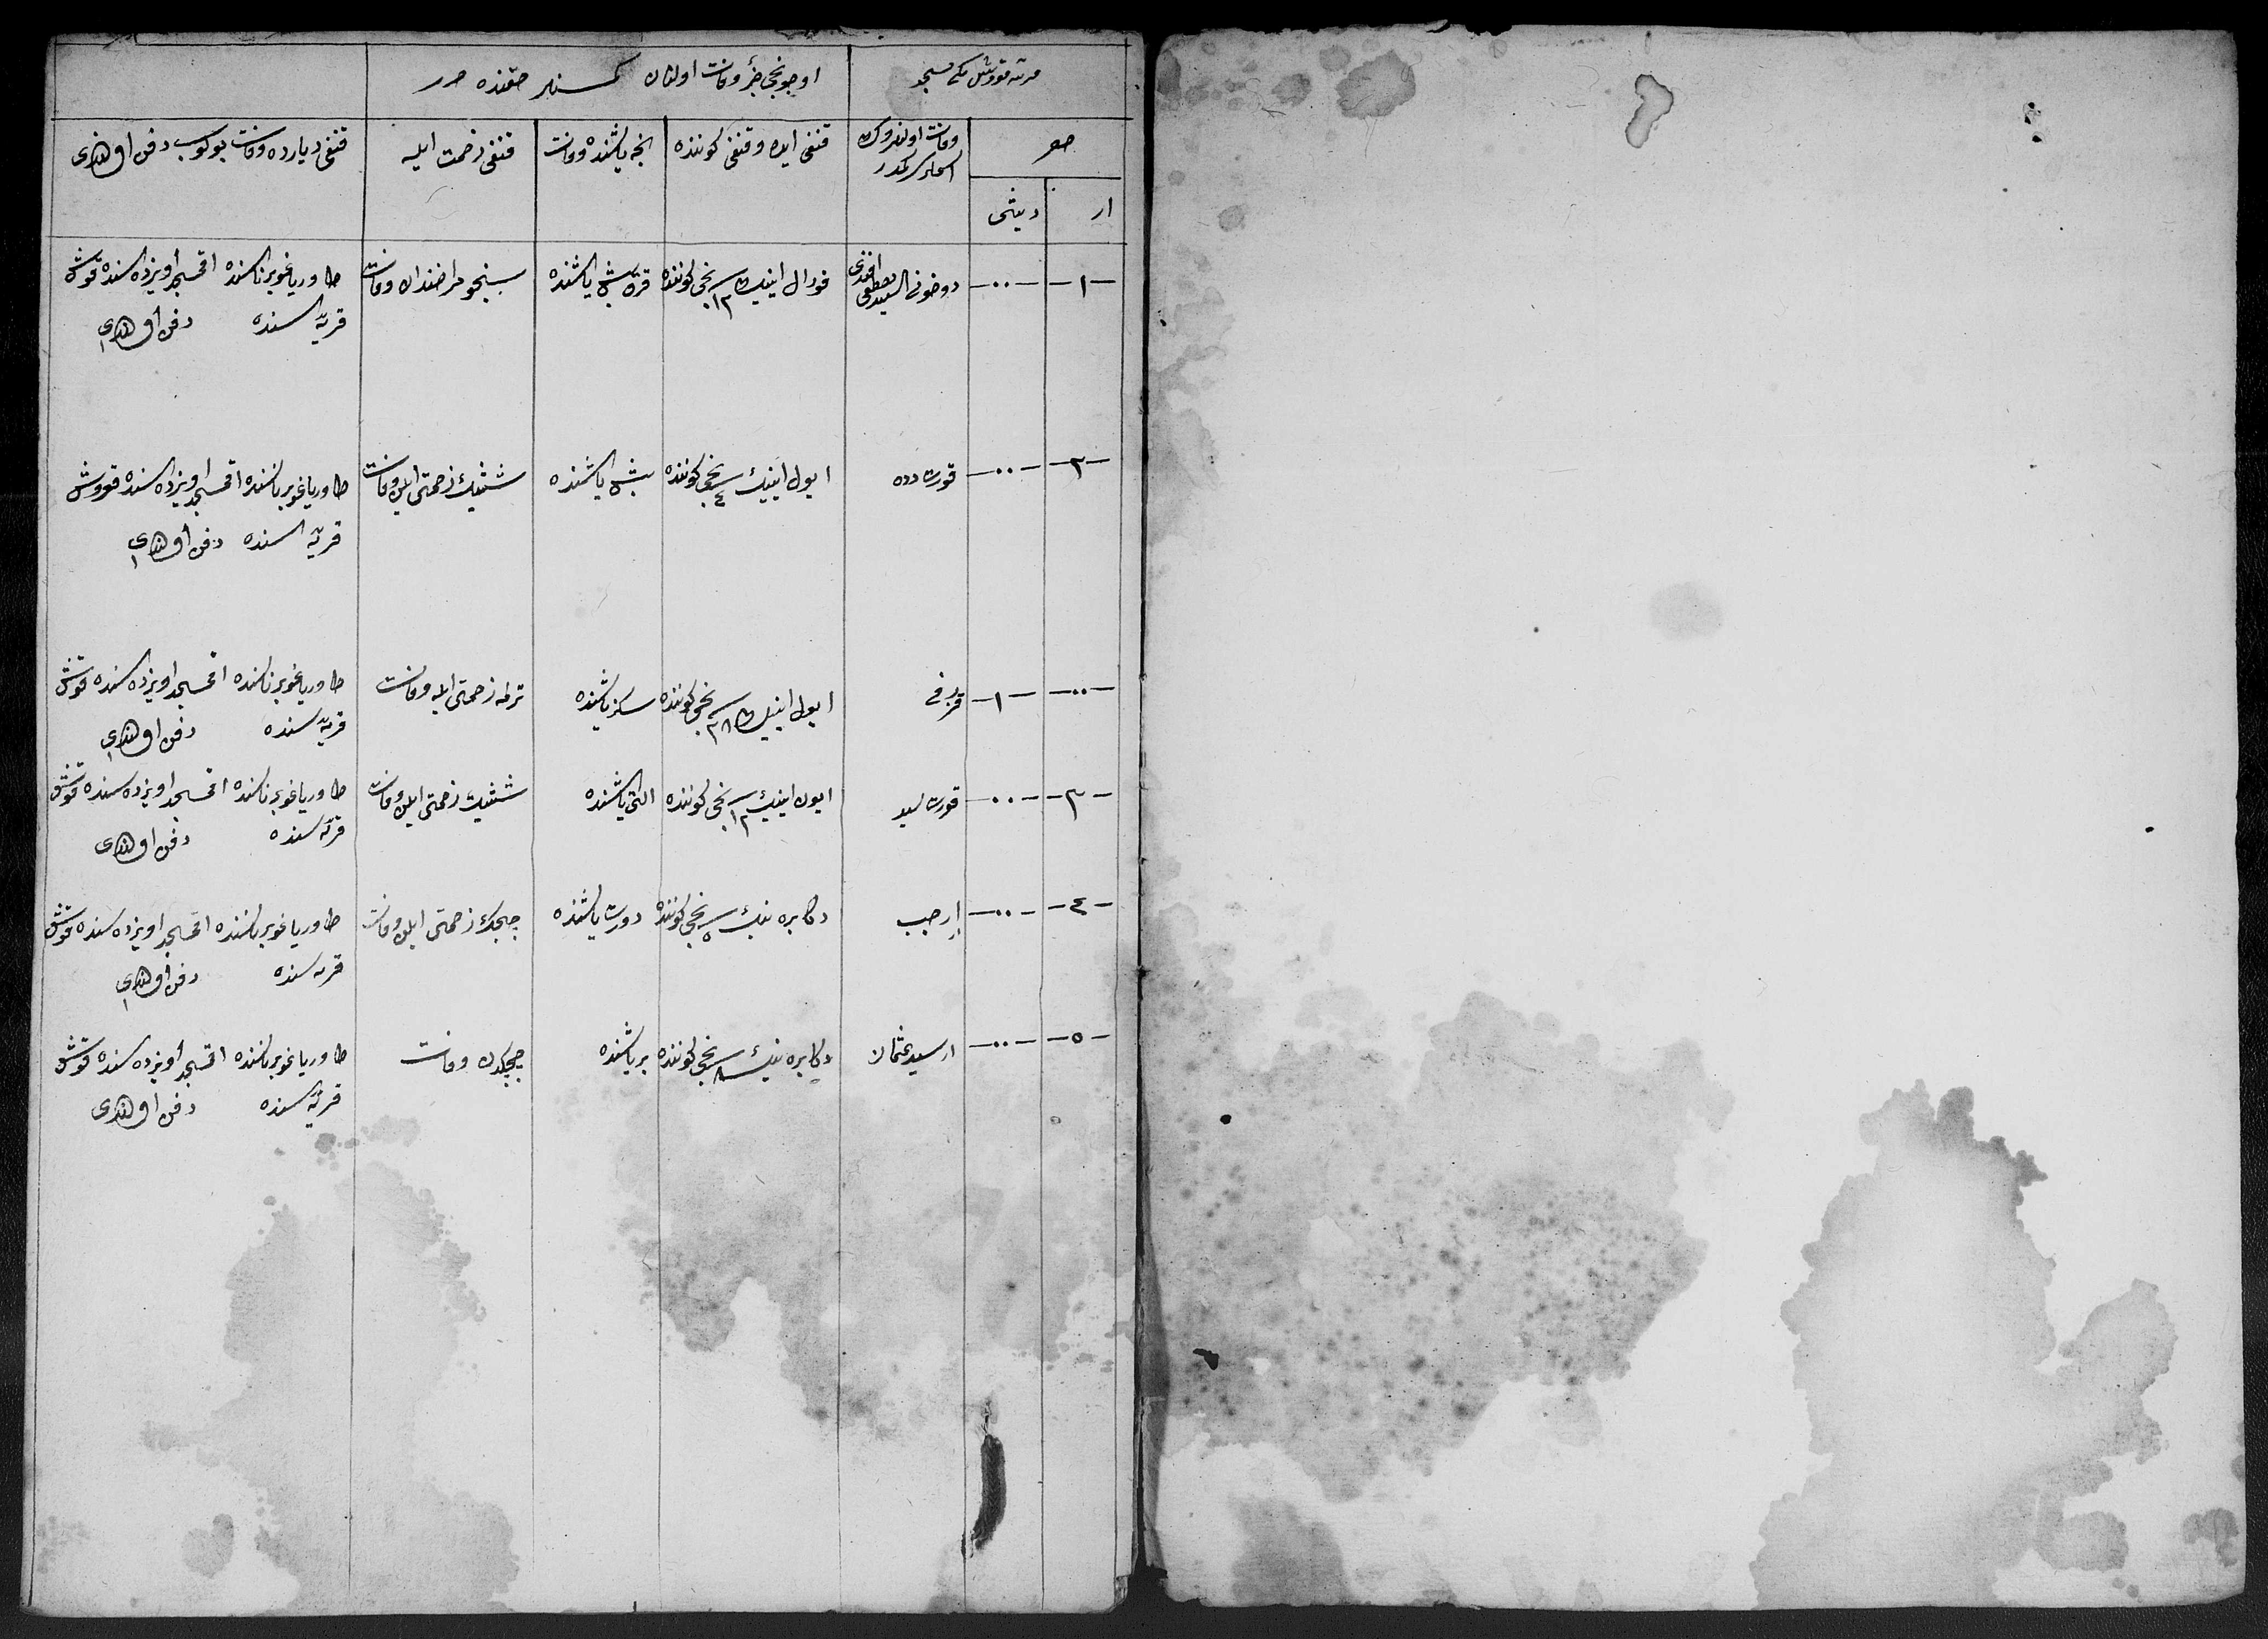 اوچونجی جزؤ وفات اولنان کمسنه‌لر حقنده در
صغر
وفات اولندروک اسملری کمدر
قنغی ایده و قنغی کوننده
نجه یاشنده وفات
قنغی زحمت ایله
قنغی دیارده وفات بولوب دفن اولندی
ار
دیشی
-١- -٠٠-
السید مصطفی افندی
فورال اینیك ١٢ نجی کوننده
قرق بش یاشنده
وفات
طاوریا غوبرناسنده اقمسجد اویزده‌سنده قوش
قریه‌سنده دفن اولندی
-٢- -٠٠-
قورت دده
ایول اینیك ٤ نجی کوننده
بش یاشنده
زحمتی ایلن وفات
طاوریا غوبرناسنده اقمسجد اویزده‌سنده قووش
قریه‌سنده دفن اولندی
-٠٠- -١-
ایول اینیك ٢٨ نجی کوننده
سکز یاشنده
ترله زحمتی ایله وفات
طاوریا غوبرناسنده اقمسجد اویزده‌سنده قوش
قریه‌سنده دفن اولندی
-٣- -٠٠-
قورت سید
ایول اینیك ١٢ نجی کوننده
التی یاشنده
زحمتی ایلن وفات
طاوریا غوبرناسنده اقمسجد اویزده‌سنده قوش
قریه‌سنده دفن اولندی
-٤- -٠٠-
ار رجب
دکابره نیك ٥ نجی کوننده
دورت یاشنده
چچك زحمتی ایلن وفات
طاوریا غوبرناسنده اقمسجد اویزده‌سنده قوش
قریه‌سنده دفن اولندی
-٥- -٠٠-
ار سید عثمان
دکابره نیك ٨ نجی کوننده
بر یاشنده
چچکدن وفات
طاوریا غوبرناسنده اقمسجد اویزده‌سنده قوش
قریه‌سنده دفن اولندی